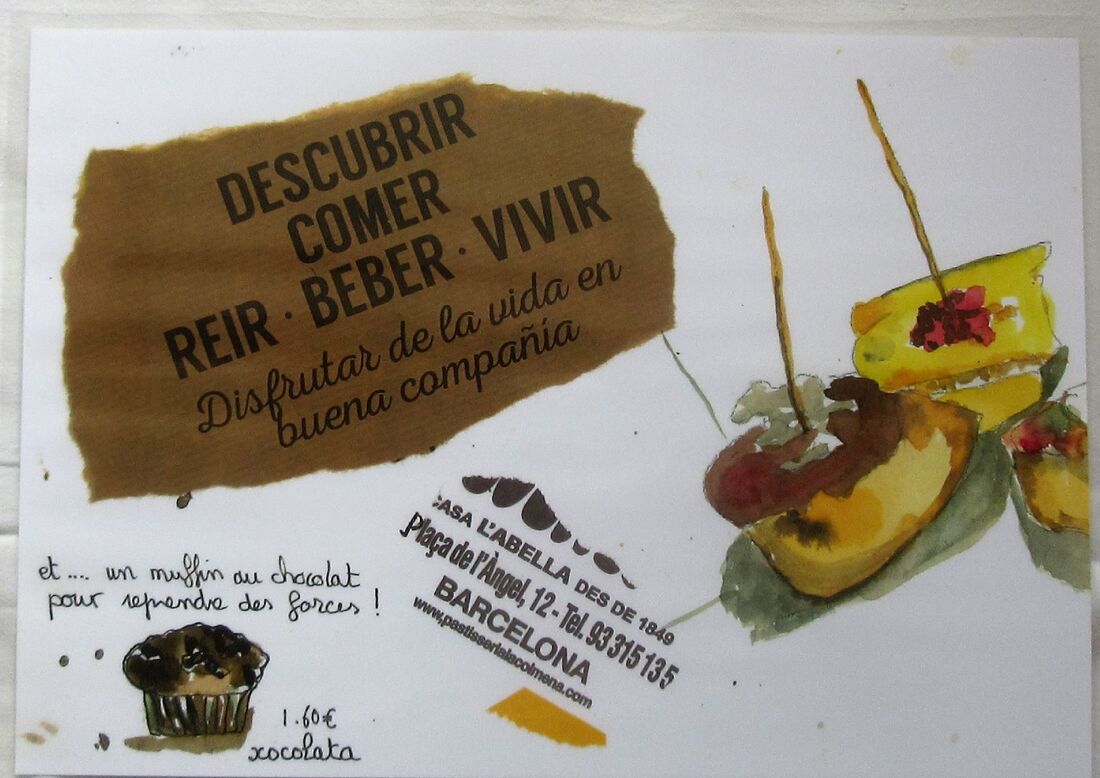 DESCUBRIR
COMER
REIR · BEBER · VIVIR
Disfrutar de la vida en
buena compañía
et .... un muffin au chocolat
pour reprendre des forces !
1.60€
xocolata
CASA L'ABELLA DES DE 1849
Plaça de l'Àngel, 12 - Tel. 93 315 135
BARCELONA
www.pastisserialacolmena.com